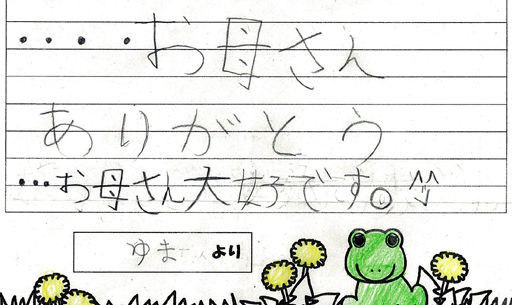 ・・・・お母さん
ありがとう
…お母さん大好です。^^
ゆまより